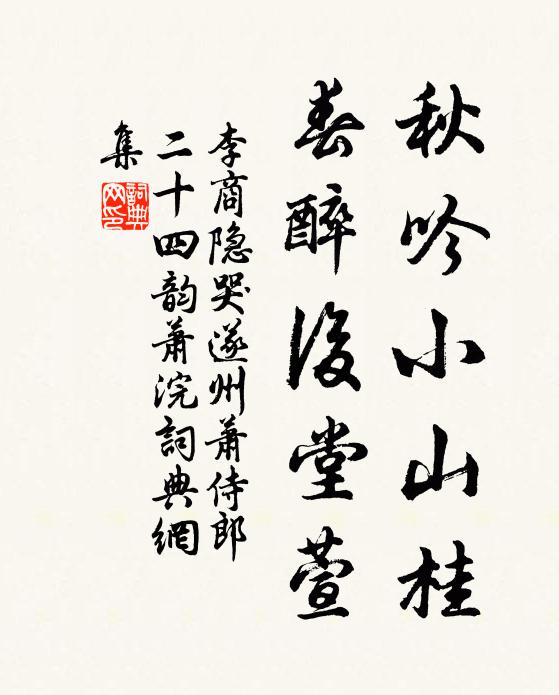 秋吟小山桂
春醉後堂萱
李商隐哭遂州萧侍郎
二十四韵萧浣詞典網
集
詞典
网印